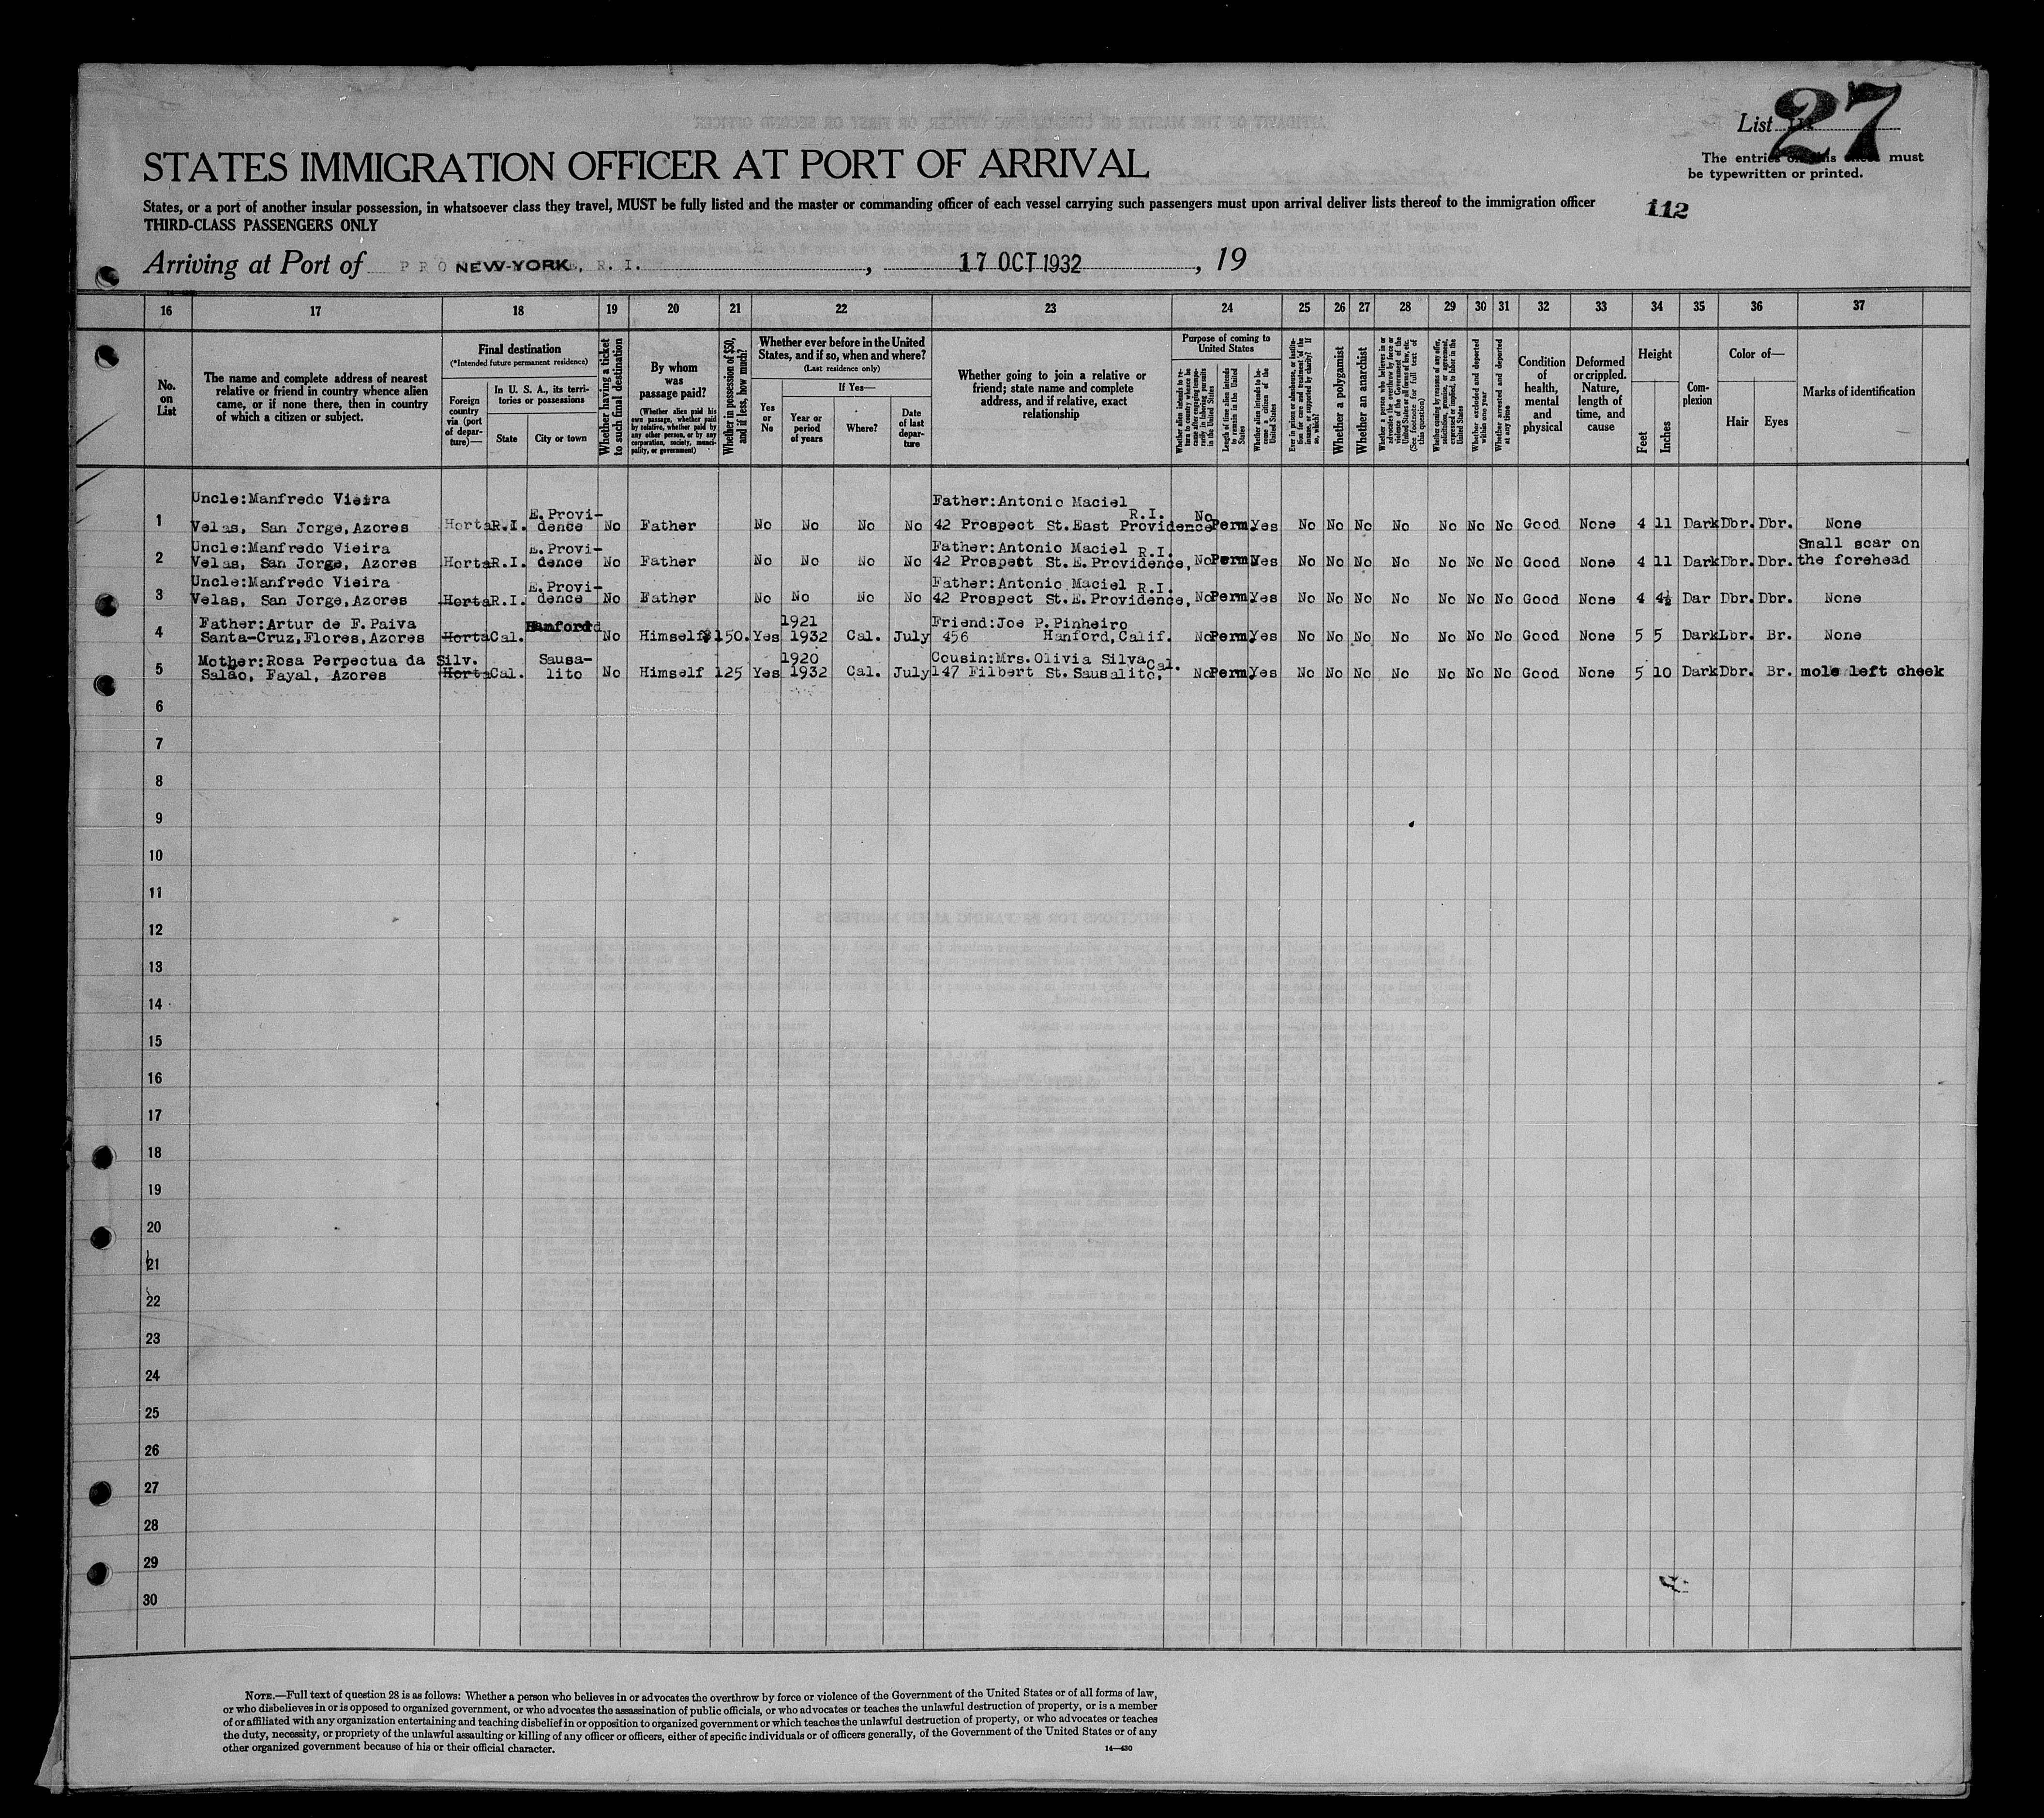 List
27
The entries on this sheet must
be typewritten or printed.
STATES IMMIGRATION OFFICER AT PORT OF ARRIVAL
States, or a port of another insular possession, in whatsoever class they travel, MUST be fully listed and the master or commanding officer of each vessel carrying such passengers must upon arrival deliver lists thereof to the immigration officer
THIRD-CLASS PASSENGERS ONLY
112
Arriving at Port of NEW-YORK, R. I. , 17 OCT 1932 , 19
16 17 18 19 20 21 22 23 24 25 26 27 28 29 30 31 32 33 34 35 36 37
No. on List
The name and complete address of nearest relative or friend in country whence alien came, or if none there, then in country of which a citizen or subject.
Final destination
(*Intended future permanent residence)
Foreign country via (port of departure)—
In U. S. A., its territories or possessions
State
City or town
Whether having a ticket to such final destination
By whom was passage paid?
(Whether alien paid his own passage, whether paid by relative, whether paid by any other person, or by any corporation, society, municipality, or government)
Whether in possession of $50, and if less, how much?
Whether ever before in the United States, and if so, when and where?
(Last residence only)
Yes or No
If Yes—
Year or period of years
Where?
Date of last departure
Whether going to join a relative or friend; state name and complete address, and if relative, exact relationship
Purpose of coming to United States
Whether alien intends to return to country whence he came after engaging temporarily in laboring pursuits in the United States
Length of time alien intends to remain in the United States
Whether alien intends to become a citizen of the United States
Ever in prison or almshouse, or institution for care and treatment of the insane, or supported by charity? If so, which?
Whether a polygamist
Whether an anarchist
Whether a person who believes in or advocates the overthrow by force or violence of the Government of the United States or all forms of law, etc. (See footnote for full text of this question)
Whether coming by reasons of any offer, solicitation, promise, or agreement, expressed or implied, to labor in the United States
Whether excluded and deported within one year
Whether arrested and deported at any time
Condition of health, mental and physical
Deformed or crippled. Nature, length of time, and cause
Height
Feet
Inches
Complexion
Color of—
Hair
Eyes
Marks of identification
1 Uncle:Manfredo Vieira
Velas, San Jorge, Azores Horta R.I. E. Providence No Father No No No No Father:Antonio Maciel
42 Prospect St. East Providence R.I. No Perm. Yes No No No No No No No Good None 4 11 Dark Dbr. Dbr. None
2 Uncle:Manfredo Vieira
Velas, San Jorge, Azores Horta R.I. E. Providence No Father No No No No Father:Antonio Maciel
42 Prospect St. E. Providence, R.I. No Perm. Yes No No No No No No No Good None 4 11 Dark Dbr. Dbr. Small scar on the forehead
3 Uncle:Manfredo Vieira
Velas, San Jorge, Azores Horta R.I. E. Providence No Father No No No No Father:Antonio Maciel
42 Prospect St. E. Providence, R.I. No Perm Yes No No No No No No No Good None 4 4½ Dar Dbr. Dbr. None
4 Father:Artur de F. Paiva
Santa-Cruz, Flores, Azores Horta Cal. Hanford No Himself $150. Yes 1921 1932 Cal. July Friend:Joe P. Pinheiro
456 Hanford, Calif. No Perm. Yes No No No No No No No Good None 5 5 Dark Lbr. Br. None
5 Mother:Rosa Perpectua da Silv.
Salao, Fayal, Azores Horta Cal. Sausalito No Himself 125 Yes 1920 1932 Cal. July Cousin:Mrs. Olivia Silva
147 Filbert St. Sausalito, Cal. No Perm. Yes No No No No No No No Good None 5 10 Dark Dbr. Br. mole left cheek
6
7
8
9
10
11
12
13
14
15
16
17
18
19
20
21
22
23
24
25
26
27
28
29
30
NOTE.—Full text of question 28 is as follows: Whether a person who believes in or advocates the overthrow by force or violence of the Government of the United States or of all forms of law,
or who disbelieves in or is opposed to organized government, or who advocates the assassination of public officials, or who advocates or teaches the unlawful destruction of property, or is a member
of or affiliated with any organization entertaining and teaching disbelief in or opposition to organized government or which teaches the unlawful destruction of property, or who advocates or teaches
the duty, necessity, or propriety of the unlawful assaulting or killing of any officer or officers, either of specific individuals or of officers generally, of the Government of the United States or of any
other organized government because of his or their official character.
14—430